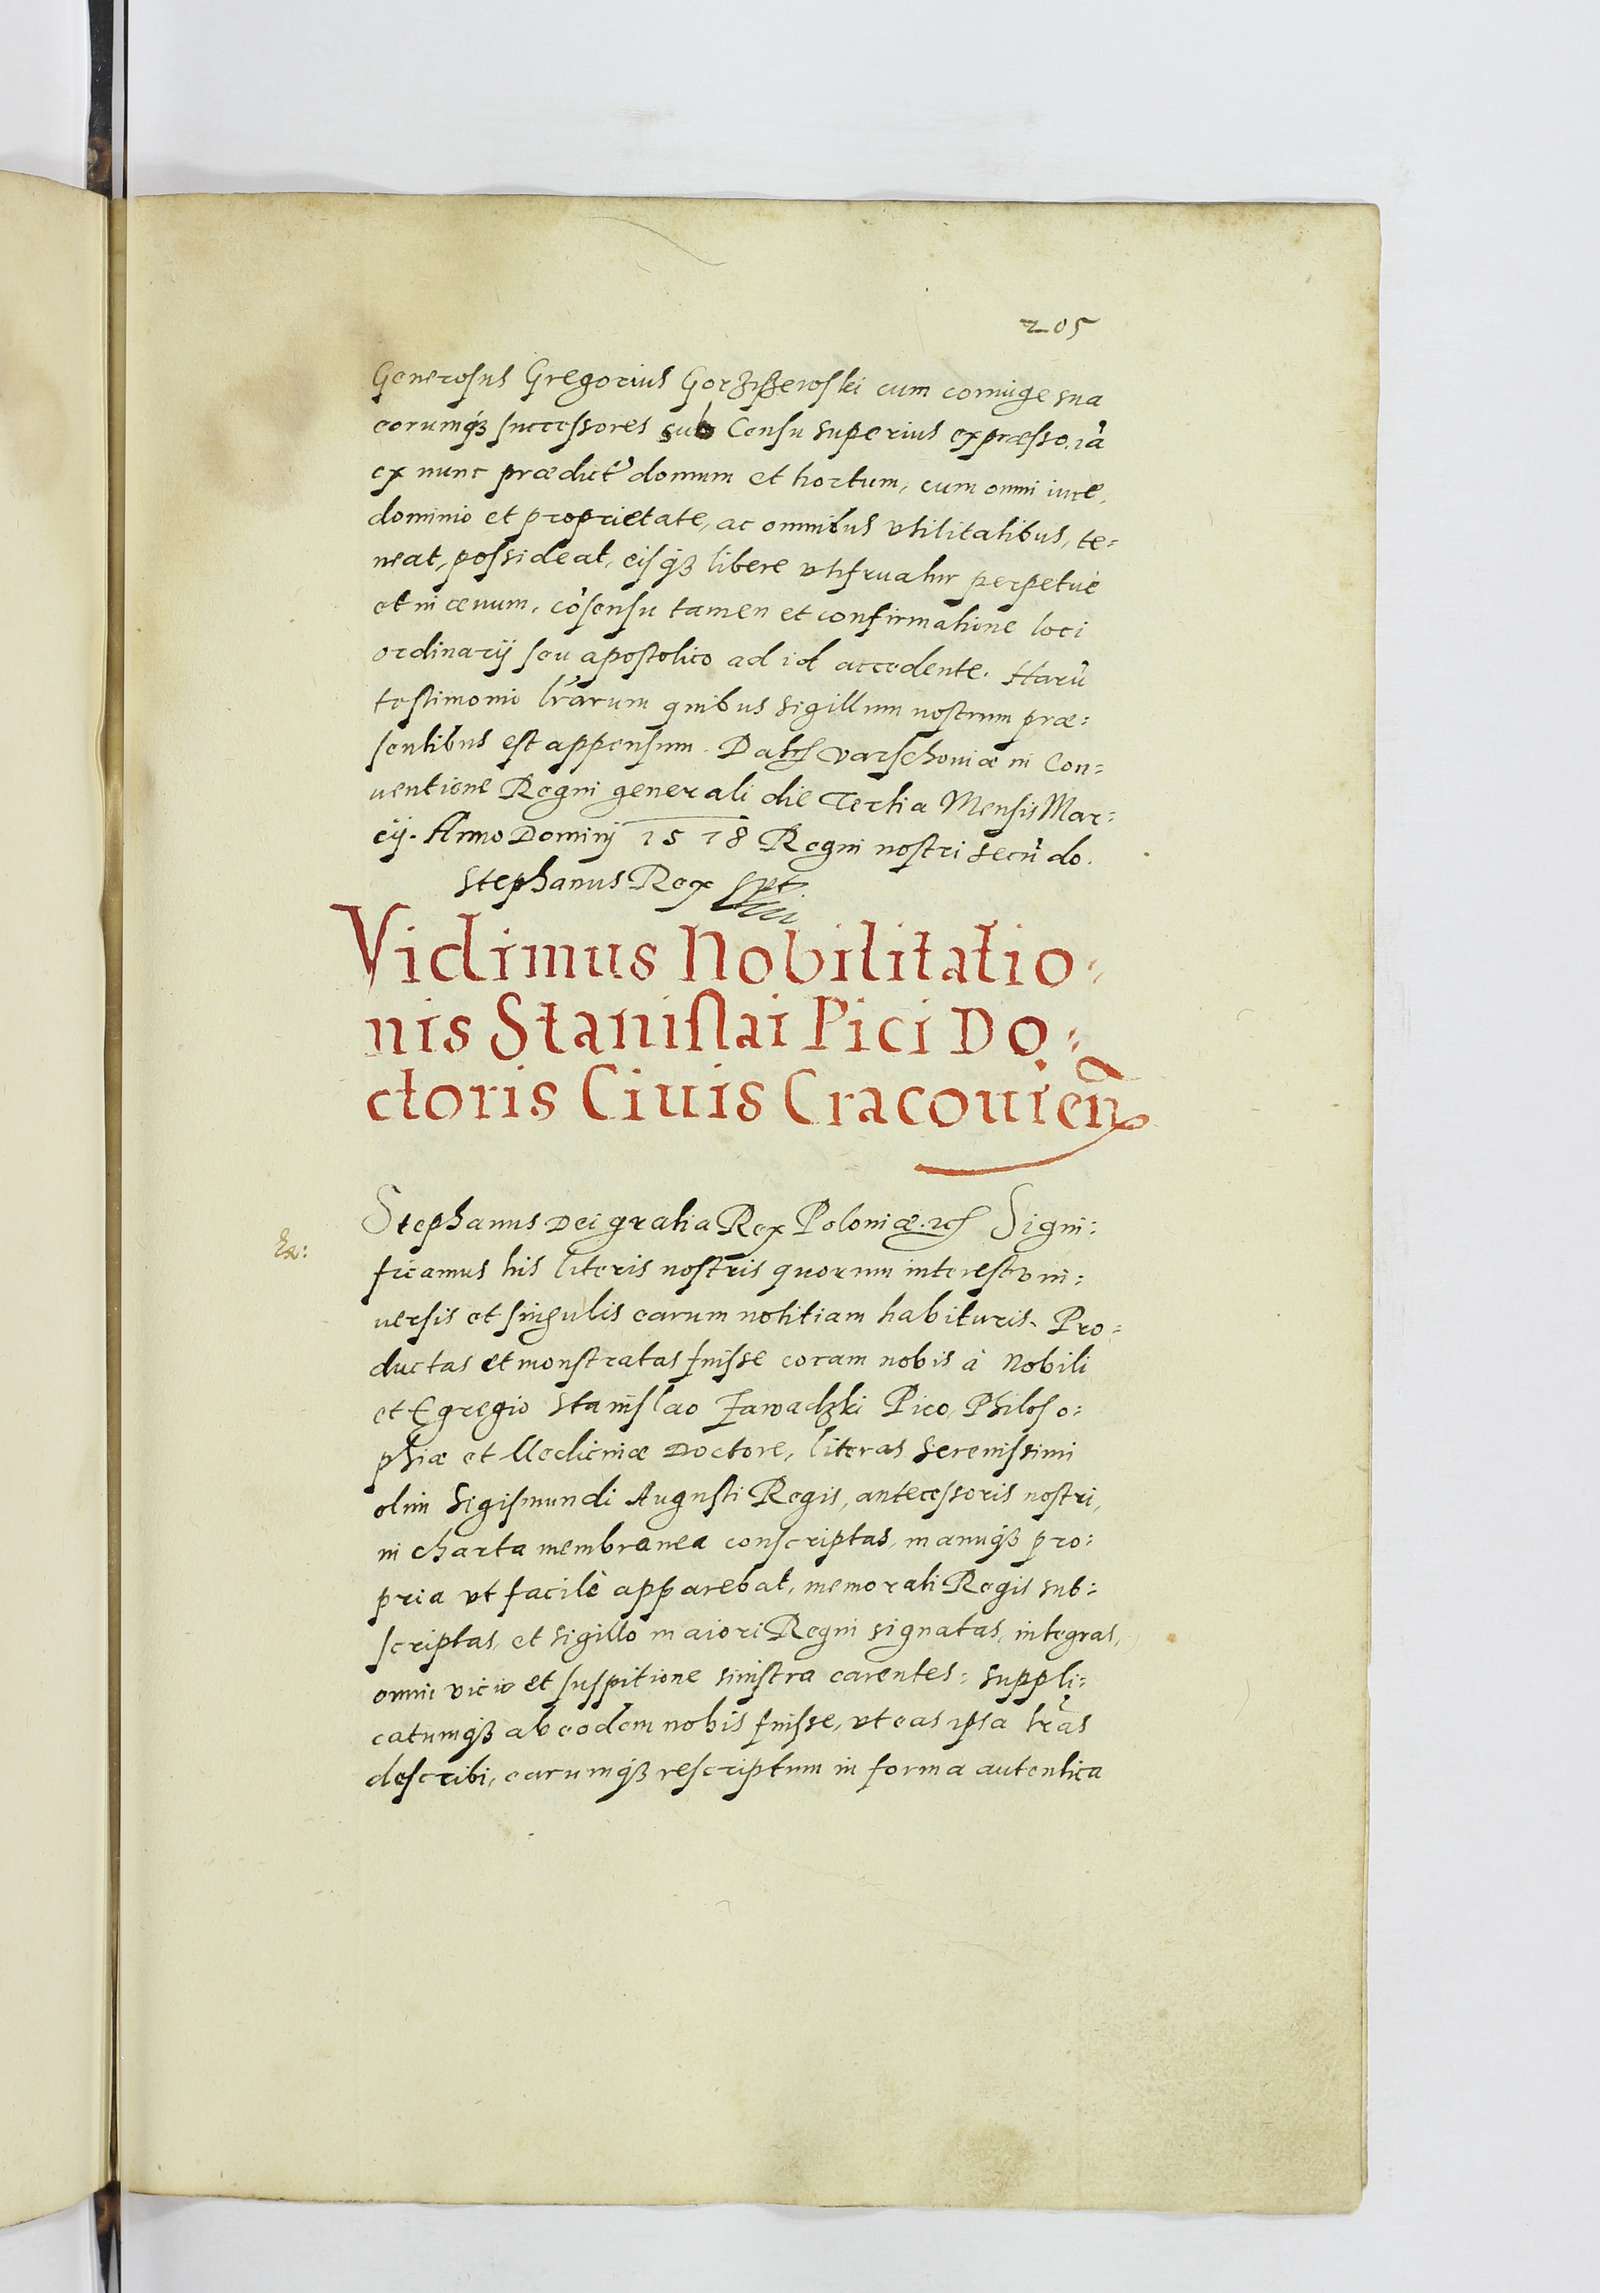 205
Generosus Gregorius Gorziszewski cum coniuge sua
eorumq3 successores sub Censu superius expræsso. iã
ex nunc prædict' domum et hortum, cum omni iure,
dominio et proprietate, ac omnibus vtilitatibus, te=
neat, possideat, eisq3 libere vtifruatur perpetuè
et in æuum, cõsensu tamen et confirmatione loci
ordinarij seu apostolico ad id accedente. Harũ
testimonio lrãrum quibus sigillum nostrum præ=
sentibus est appensum. Datꝭ Varschouiæ in Con=
uentione Regni generali die Tertia Mensis Mar=
cij. Anno Dominj 1578 Regni nostri secũdo.
Stephanus Rex sst
Vidimus Nobilitatio=
nis Stanislai Pici Do=
ctoris Ciuis Cracouieñ
Stephanus Dei gratia Rex Poloniæ. ꝛcꝭ Signi=
ficamus his literis nostris quorum interest vni=
uersis et singulis earum notitiam habituris. Pro=
ductas et monstratas fuisse coram nobis à Nobili
et Egregio Stanislao Zawadzki Pico, Philoso=
phiæ et Medicinæ Doctore, literas Serenissimi
olim Sigismundi Augusti Regis, antecessoris nostri,
in charta membranea conscriptas, manuq3 pro=
pria vt facilè apparebat, memorati Regis sub=
scriptas, et sigillo maiori Regni signatas, integras,
omni vicio et suspitione sinistra carentes: suppli=
catumq3 ab eodem nobis fuisse, vt eas ipsa lrãs
describi, earumq3 rescriptum in forma autentica